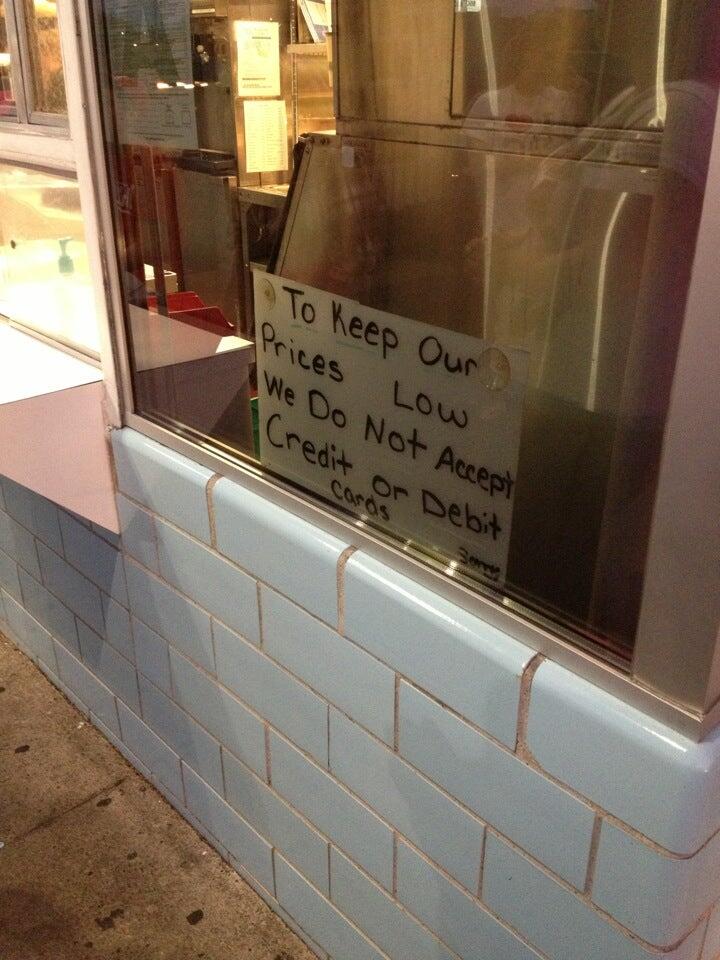 To Keep Our
Prices Low
We Do Not Accept
Credit or Debit
Cards
Sorry